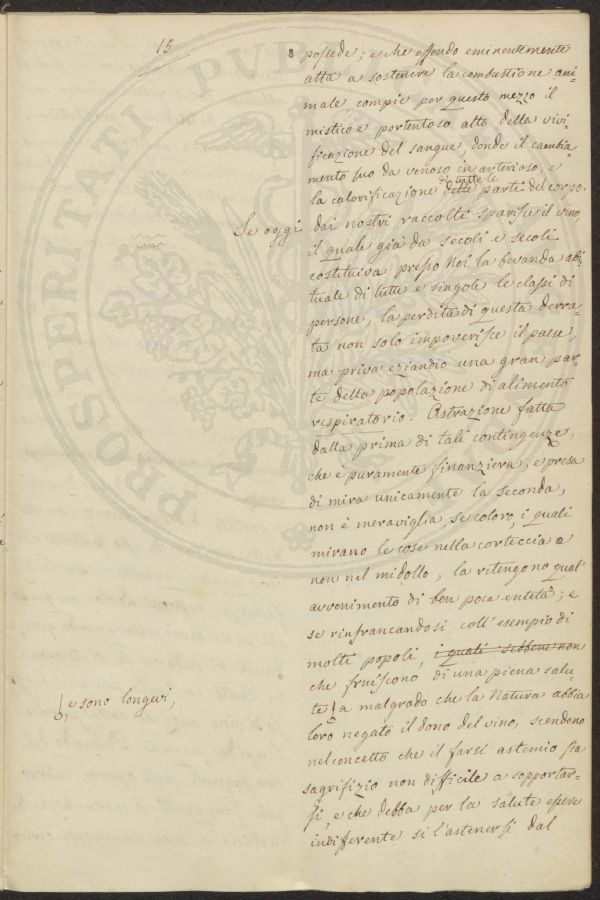 15
8
possede; e che essendo eminentemente
atta a sostenere la combustione ani-
male, compie per questo mezzo il
mistico e portentoso atto della vivi-
ficazione del sangue, donde il cambia-
mento suo da venoso in arterioso, e
la calorificazione di tutte le dette parti del corpo.
Se oggi dai nostri raccolti sparisce il vino,
il quale già da secoli e secoli
costituiva presso Noi la bevanda abi-
tuale di tutte e singole le classi di
persone, la perdita di questa derra-
ta non solo impoverisce il paese,
ma priva eziandio una gran par-
te della popolazione di alimento
respiratorio. Astrazione fatta
dalla prima di tali contingenze,
che è puramente finanziera, e presa
di mira unicamente la seconda,
non è meraviglia, se coloro, i quali
mirano le cose nella corteccia e
non nel midollo, la ritengono qual'
avvenimento di ben poca entità; e
se rinfrancandosi coll'esempio di
molti popoli, i quali sebbene non
che fruiscono di una piena salu-
te, e sono longevi, a malgrado che la Natura abbia
loro negato il dono del vino, scendono
nel concetto che il farsi astemio sia
sagrifizio non difficile a sopportar-
si, e che debba per la salute essere
indifferente sì l'astenersi dal
PROSPERITATI PVBL